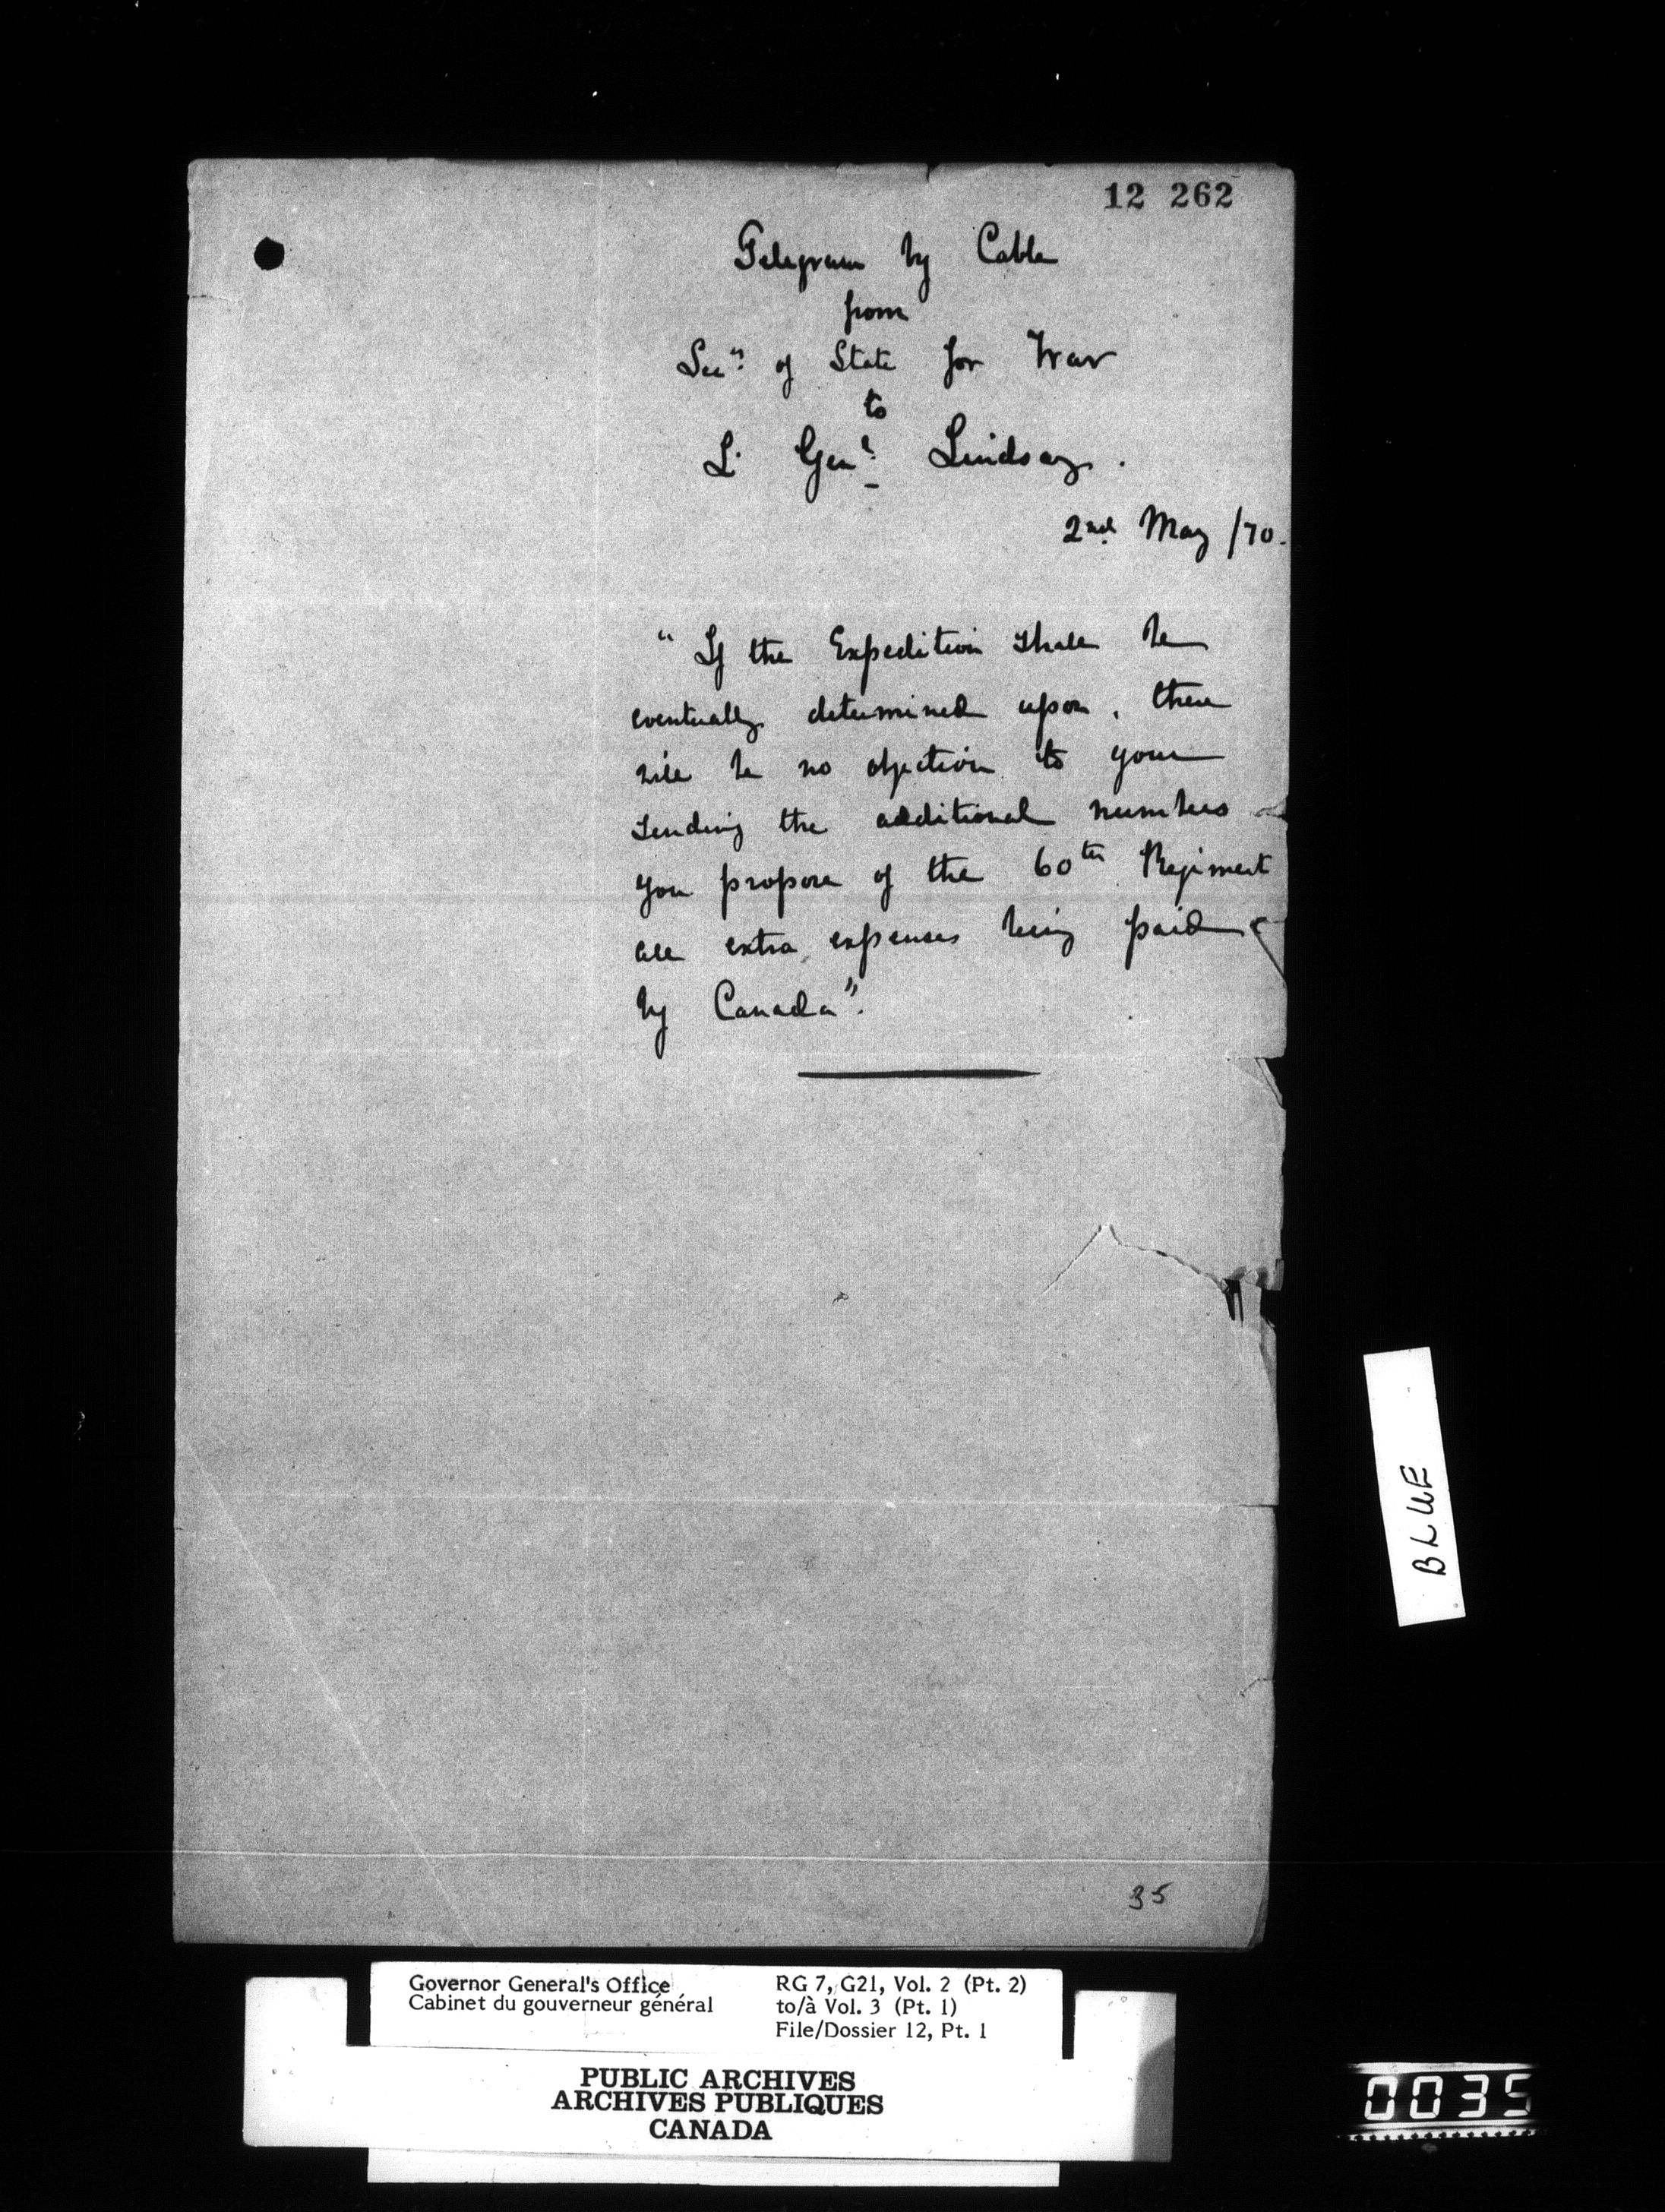 12 262
Telegram by Cable
from
Secy. of State for War
to
Lt. Genl. Lindsay.
2nd. May /70.
"If the Expedition shall be
eventually determined upon, there
will be no objection to your
sending the additional numbers
you propose of the 60th Regiment
all extra expenses being paid
by Canada".
35
BLUE
Governor General's Office
Cabinet du gouverneur général
RG 7, G21, Vol. 2 (Pt. 2)
to/à Vol. 3 (Pt. 1)
File/Dossier 12, Pt. 1
PUBLIC ARCHIVES
ARCHIVES PUBLIQUES
CANADA
0035